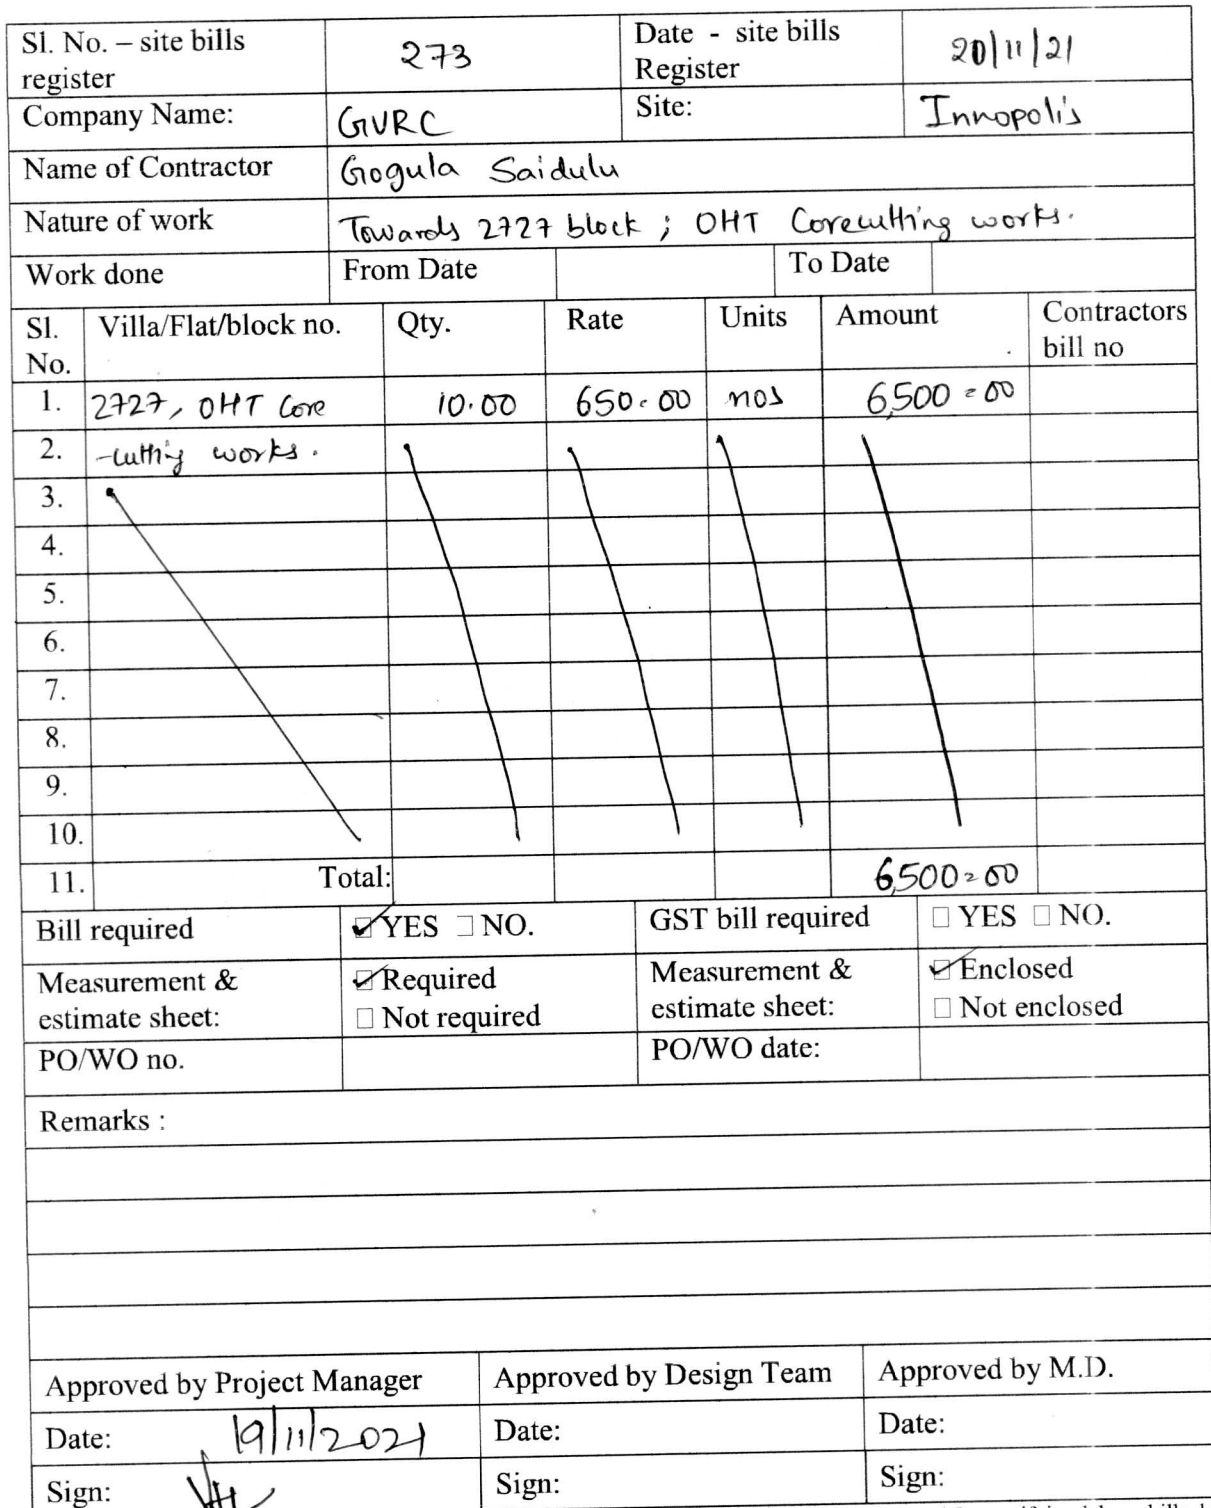 Sl. No. – site bills register 273 Date - site bills Register 20/11/21
Company Name: GVRC Site: Innopolis
Name of Contractor Gogula Saidulu
Nature of work Towards 2727 block ; OHT Corecutting works.
Work done From Date To Date
Sl. No. Villa/Flat/block no. Qty. Rate Units Amount Contractors bill no
1. 2727, OHT Core 10.00 650.00 nos 6,500=00
2. -cutting works.
3.
4.
5.
6.
7.
8.
9.
10.
11. Total: 6,500=00
Bill required ☑YES ☐NO. GST bill required ☐ YES ☐ NO.
Measurement & estimate sheet: ☑Required ☐ Not required Measurement & estimate sheet: ☑Enclosed ☐ Not enclosed
PO/WO no. PO/WO date:
Remarks :
Approved by Project Manager Approved by Design Team Approved by M.D.
Date: 19/11/2021 Date: Date:
Sign: Sign: Sign: